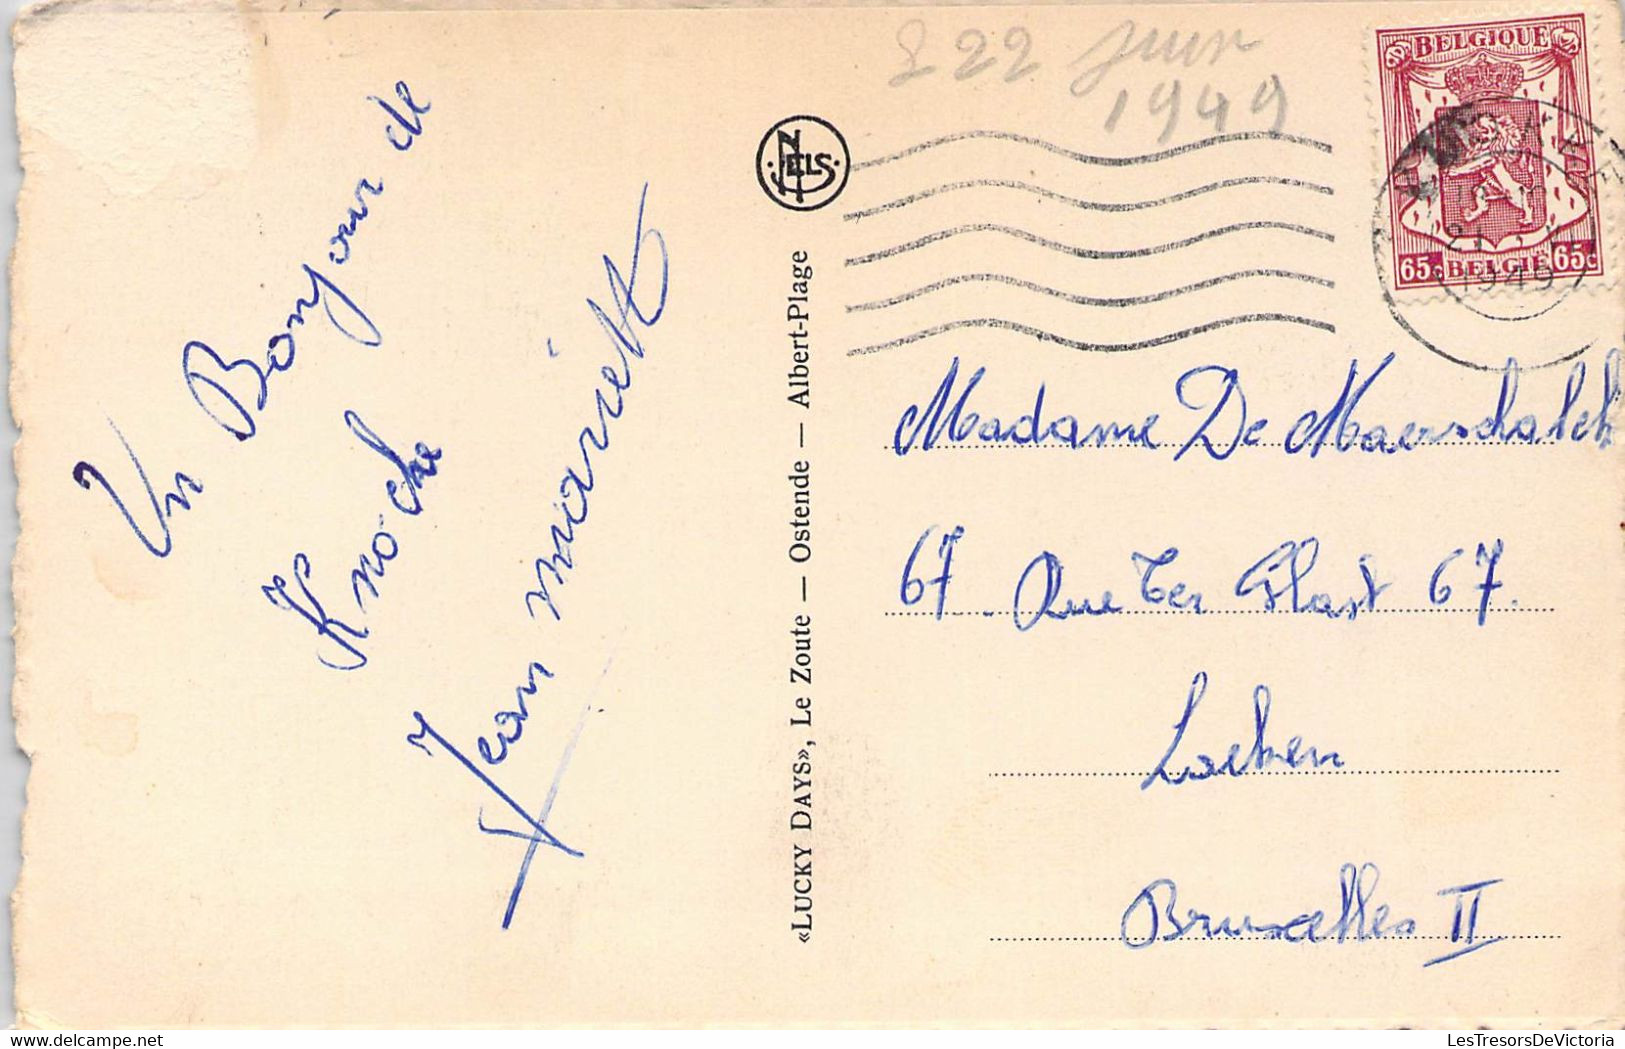 Un Bonjour de
Knocke
Jean mariette
NELS
«LUCKY DAYS», Le Zoute — Ostende — Albert-Plage
22 juin
1949
BELGIQUE
65c BELGIË 65c
1949
Madame De Maerschalck
67 Rue Ter Plast 67.
Laeken
Bruxelles II
LesTresorsDeVictoria